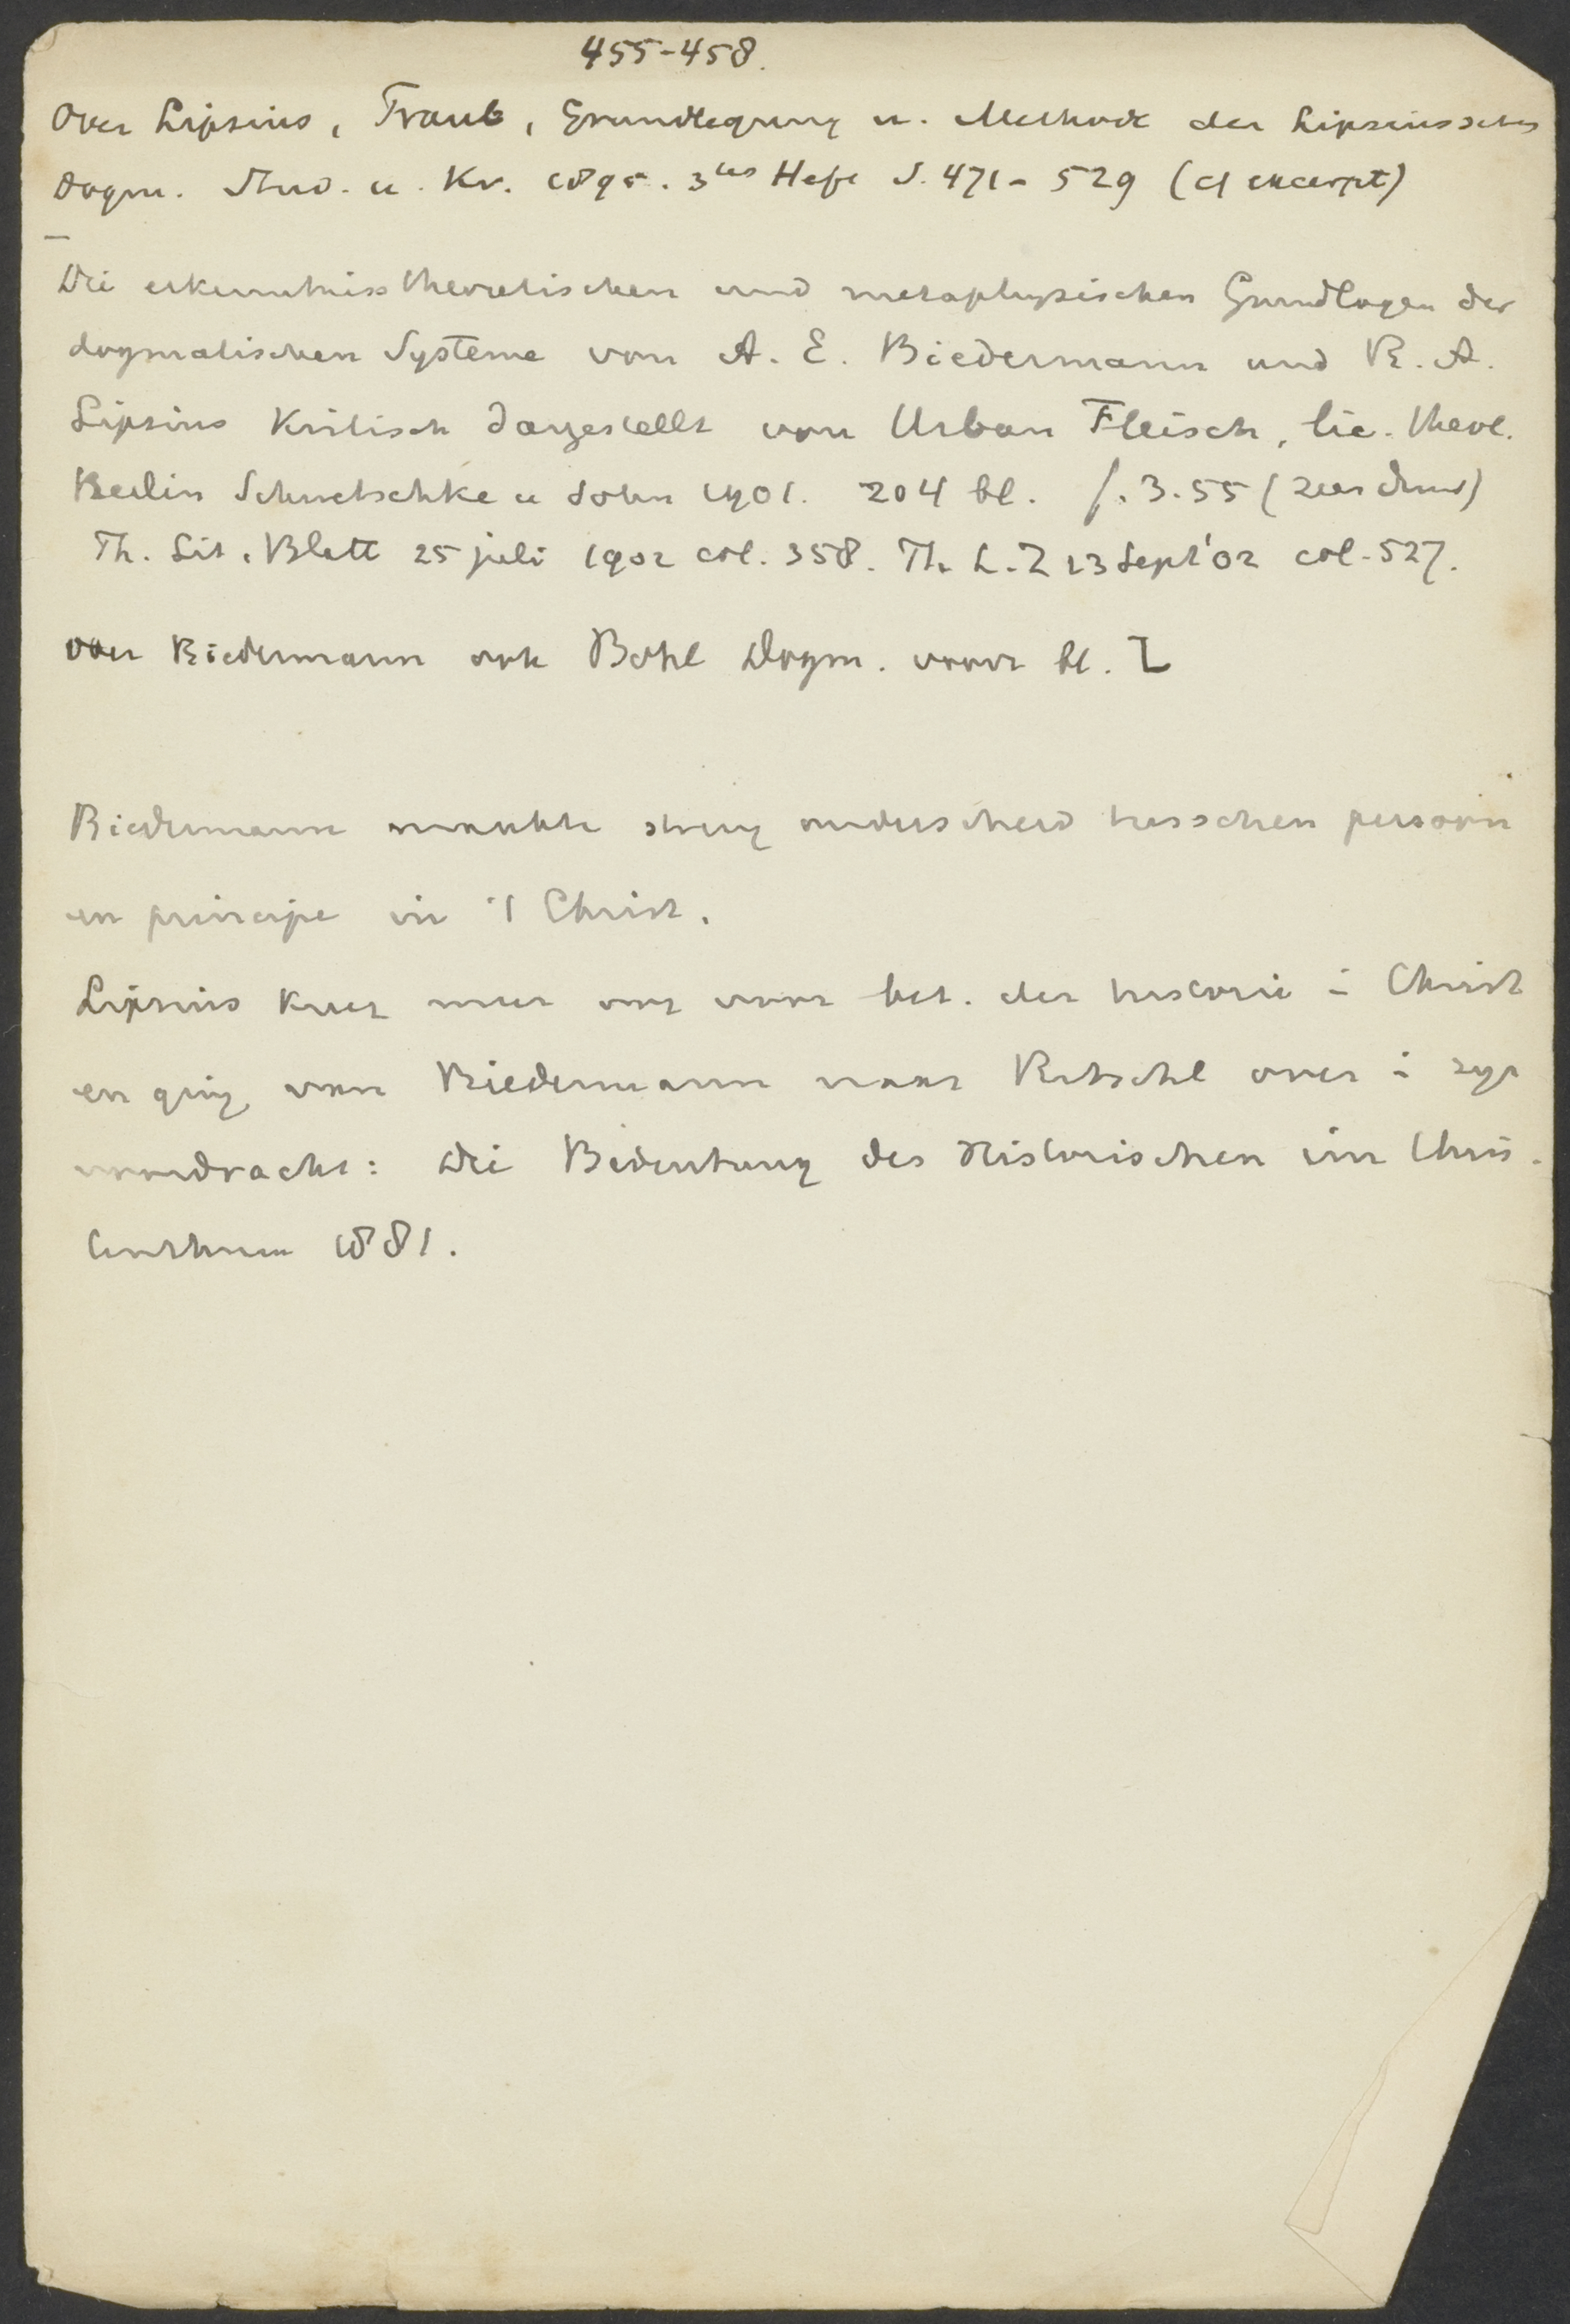 455-458.
Over Lipsius, Traub, Grundlegung u. Methode der Lipsiusschen
Dogm. Stud. u. Kr. 1895. 3tes Heft S. 471-529 (cf excerpt)
Die erkenntnisstheoretischen und metaphysischen Grundlagen der
dogmatischen Systeme von A. E. Biedermann und R. A.
Lipsius kritisch dargestellt von Urban Fleisch, lic. theol.
Berlin Schwetschke u Sohn 1901. 204 bl. f. 3.55
Th. Lit. Blatt 25 juli 1902 col. 358. Th. L. Z 13 Sept '02 col. 527.
over Biedermann ook Bohl Dogm. voorr bl. L
Biedermann maakte streng onderscheid tusschen persoon
en principe in 't Christ.
Lipsius meer oog voor bet. der historie i Christ
en ging van Biedermann naar Ritschl over i zyn
voordracht: Die Bedeutung des Historischen im Chris-
tenthum 1881.